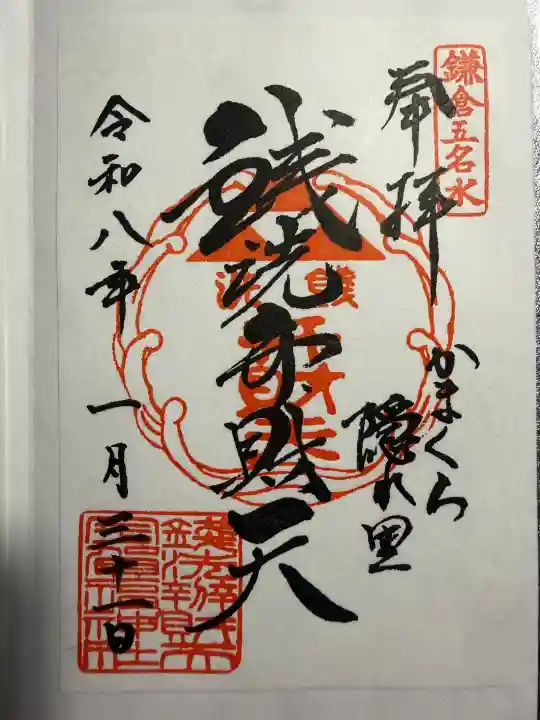 鎌倉五名水
奉拝
かまくら
隠れ里
銭洗弁財天
令和八年 一月 三十一日